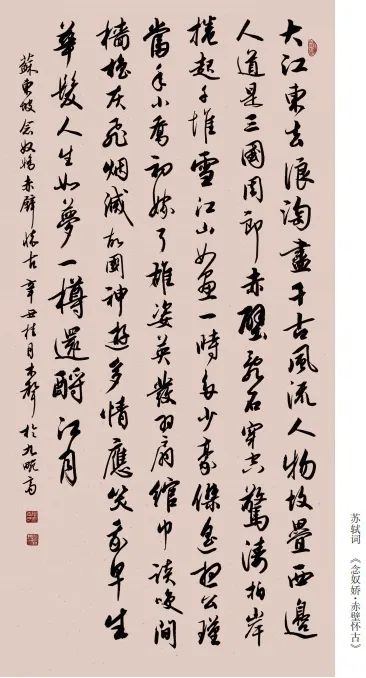 大江東去浪淘盡千古風流人物故壘西邊
人道是三國周郎赤壁亂石穿空驚濤拍岸
捲起千堆雪江山如畫一時多少豪傑遙想公瑾
當年小喬初嫁了雄姿英發羽扇綸巾談笑間
檣櫓灰飛烟滅故國神遊多情應笑我早生
華髮人生如夢一樽還酹江月
蘇東坡念奴嬌赤壁懷古 辛丑桂月 於九畹
苏轼词 《念奴娇·赤壁怀古》